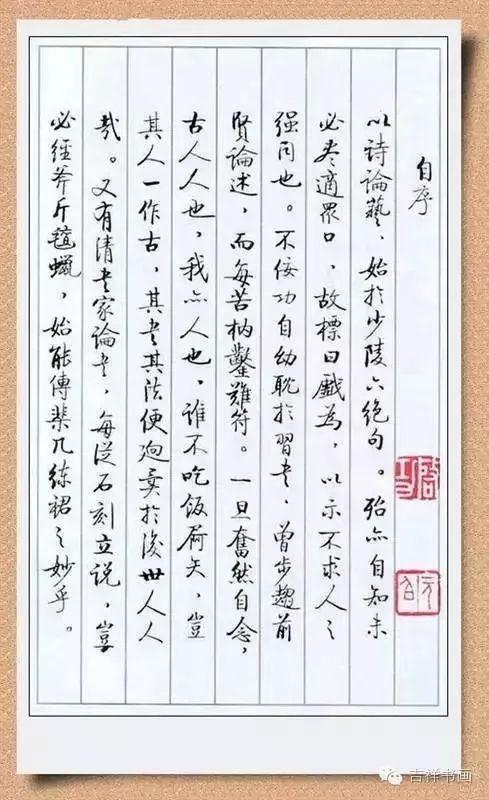 自序
以詩論藝，始於少陵六絕句。殆亦自知未
必盡適眾口，故標曰戲為，以示不求人之
强同也。不佞功自幼耽於習書，曾步趨前
賢論述，而每苦枘鑿難符。一旦奮然自念，
古人人也，我亦人也，誰不吃飯屙矢，豈
其人一作古，其書其法便迥異於後世人人
哉。又有清書家論書，每從石刻立說，豈
必經斧斤氊蠟，始能傳棐几練裙之妙乎。
啟功
元白
吉祥书画